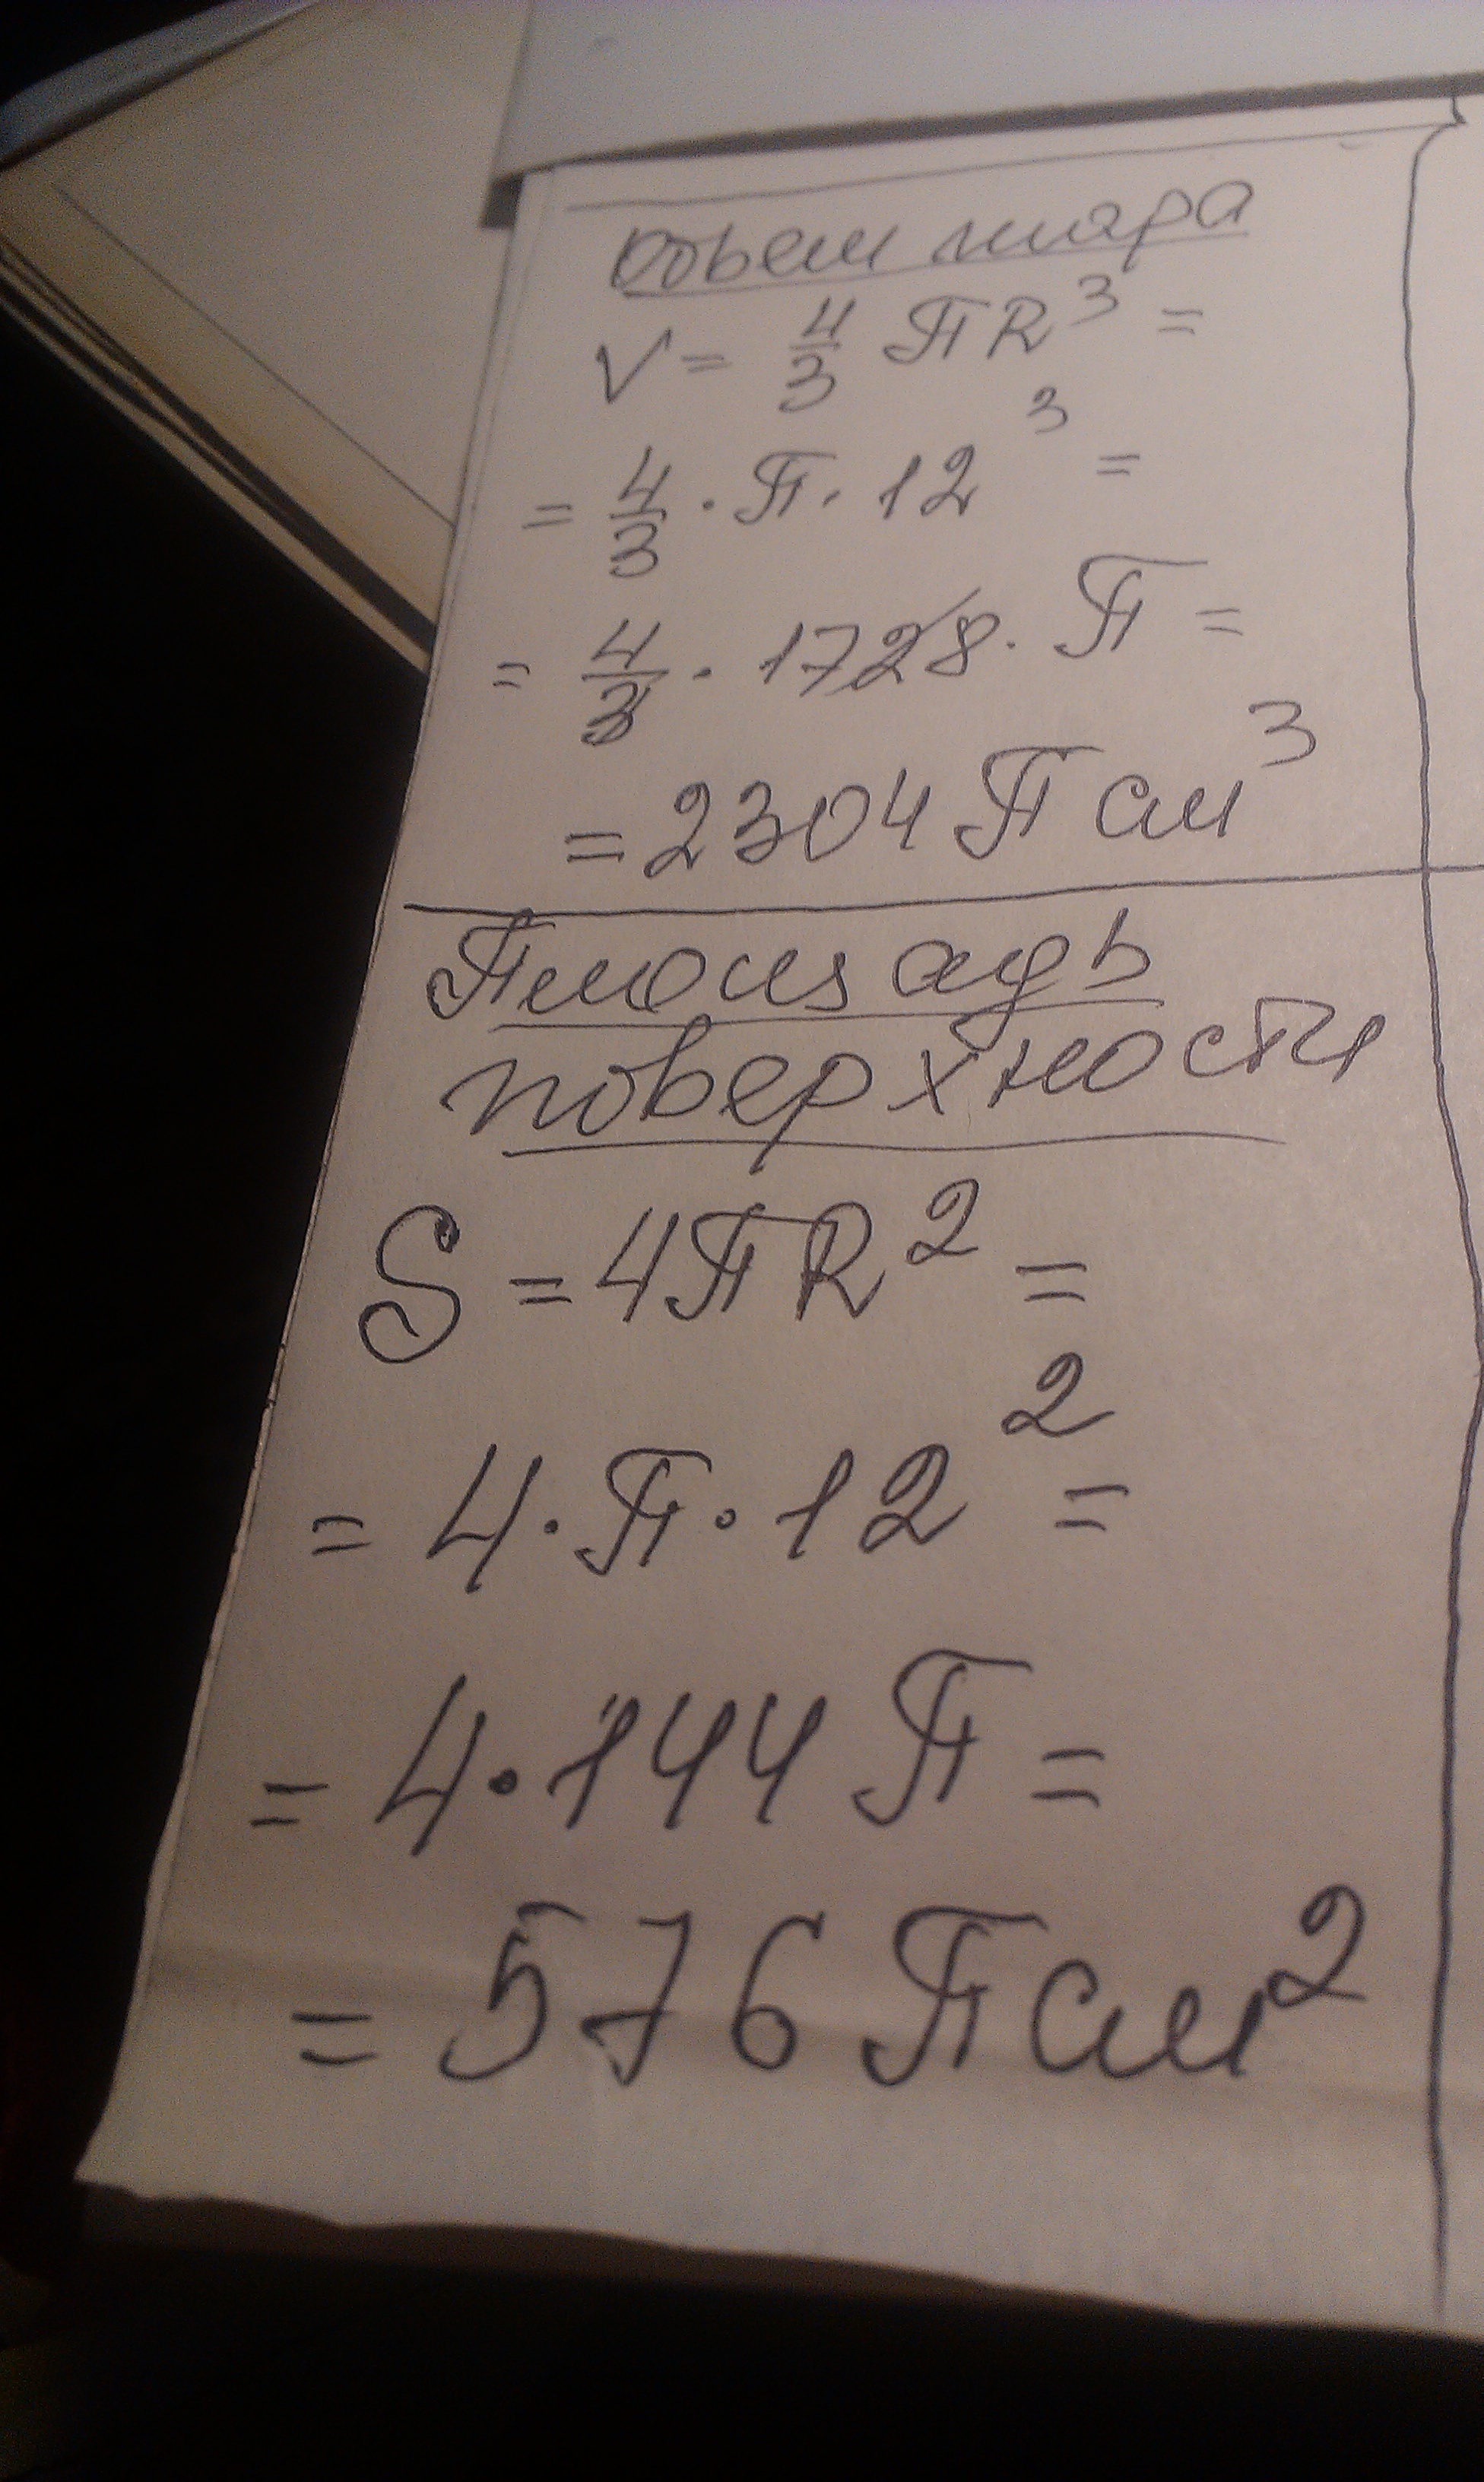 Объем шара
V = 4/3 πR³ =
= 4/3 · π · 12³ =
= 4/3 · 1728 · π =
= 2304 π см³
Площадь
поверхности
S = 4πR² =
= 4 · π · 12² =
= 4 · 144 π =
= 576 π см²